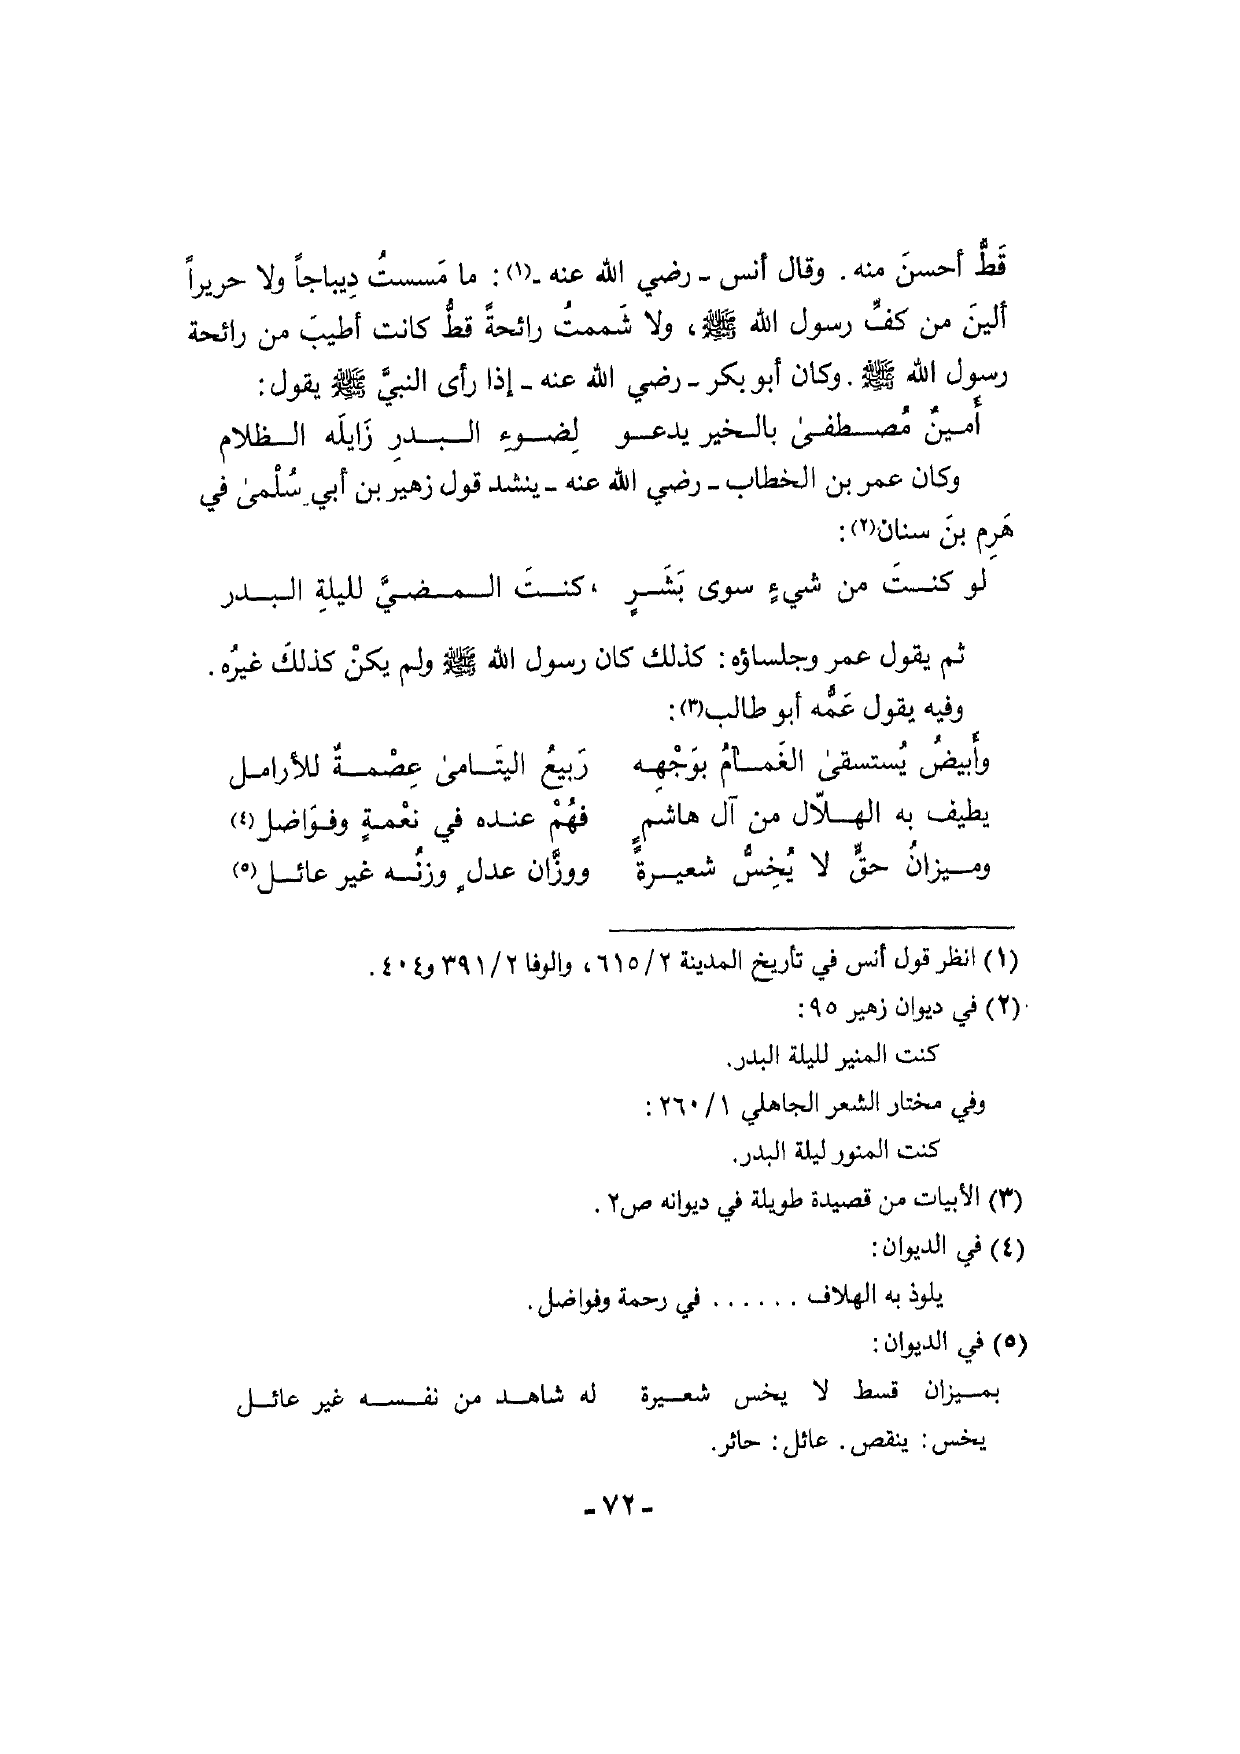 قَطُّ أحسنَ منه . وقال أنس ـ رضي الله عنه ـ(١): ما مَسستُ دِيباجاً ولا حريراً
ألينَ من كفِّ رسول الله ﷺ، ولا شَممتُ رائحةً قطُّ كانت أطيبَ من رائحة
رسول الله ﷺ . وكان أبو بكر ـ رضي الله عنه ـ إذا رأى النبيَّ ﷺ يقول:
أَمينٌ مُصطفىٰ بالخير يدعو لِضوءِ البدرِ زَايلَه الظلام
وكان عمر بن الخطاب ـ رضي الله عنه ـ ينشد قول زهير بن أبي سُلْمىٰ في
هَرِم بنَ سنان(٢):
لو كنتَ من شيءٍ سوى بَشَرٍ ، كنتَ المضيَّ لليلةِ البدر
ثم يقول عمر وجلساؤه: كذلك كان رسول الله ﷺ ولم يكنْ كذلكَ غيرُه .
وفيه يقول عَمُّه أبو طالب(٣):
وأَبيضُ يُستسقىٰ الغَمامُ بوَجْهِه رَبيعُ اليتَامىٰ عِصْمةٌ للأرامل
يطيف به الهلّال من آل هاشمٍ فهُمْ عنده في نعْمةٍ وفوَاضل(٤)
وميزانُ حقٍّ لا يُخِسُّ شعيرةً ووزَّان عدلٍ وزنُه غير عائل(٥)
(١) انظر قول أنس في تأريخ المدينة ٦١٥/٢، والوفا ٣٩١/٢ و٤٠٤ .
(٢) في ديوان زهير ٩٥:
كنت المنير لليلة البدر.
وفي مختار الشعر الجاهلي ٢٦٠/١ :
كنت المنور ليلة البدر.
(٣) الأبيات من قصيدة طويلة في ديوانه ص٢ .
(٤) في الديوان:
يلوذ به الهلاف . . . . . . في رحمة وفواضل.
(٥) في الديوان:
بميزان قسط لا يخس شعيرة له شاهد من نفسه غير عائل
يخس: ينقص. عائل: حائر.
ـ ٧٢ ـ